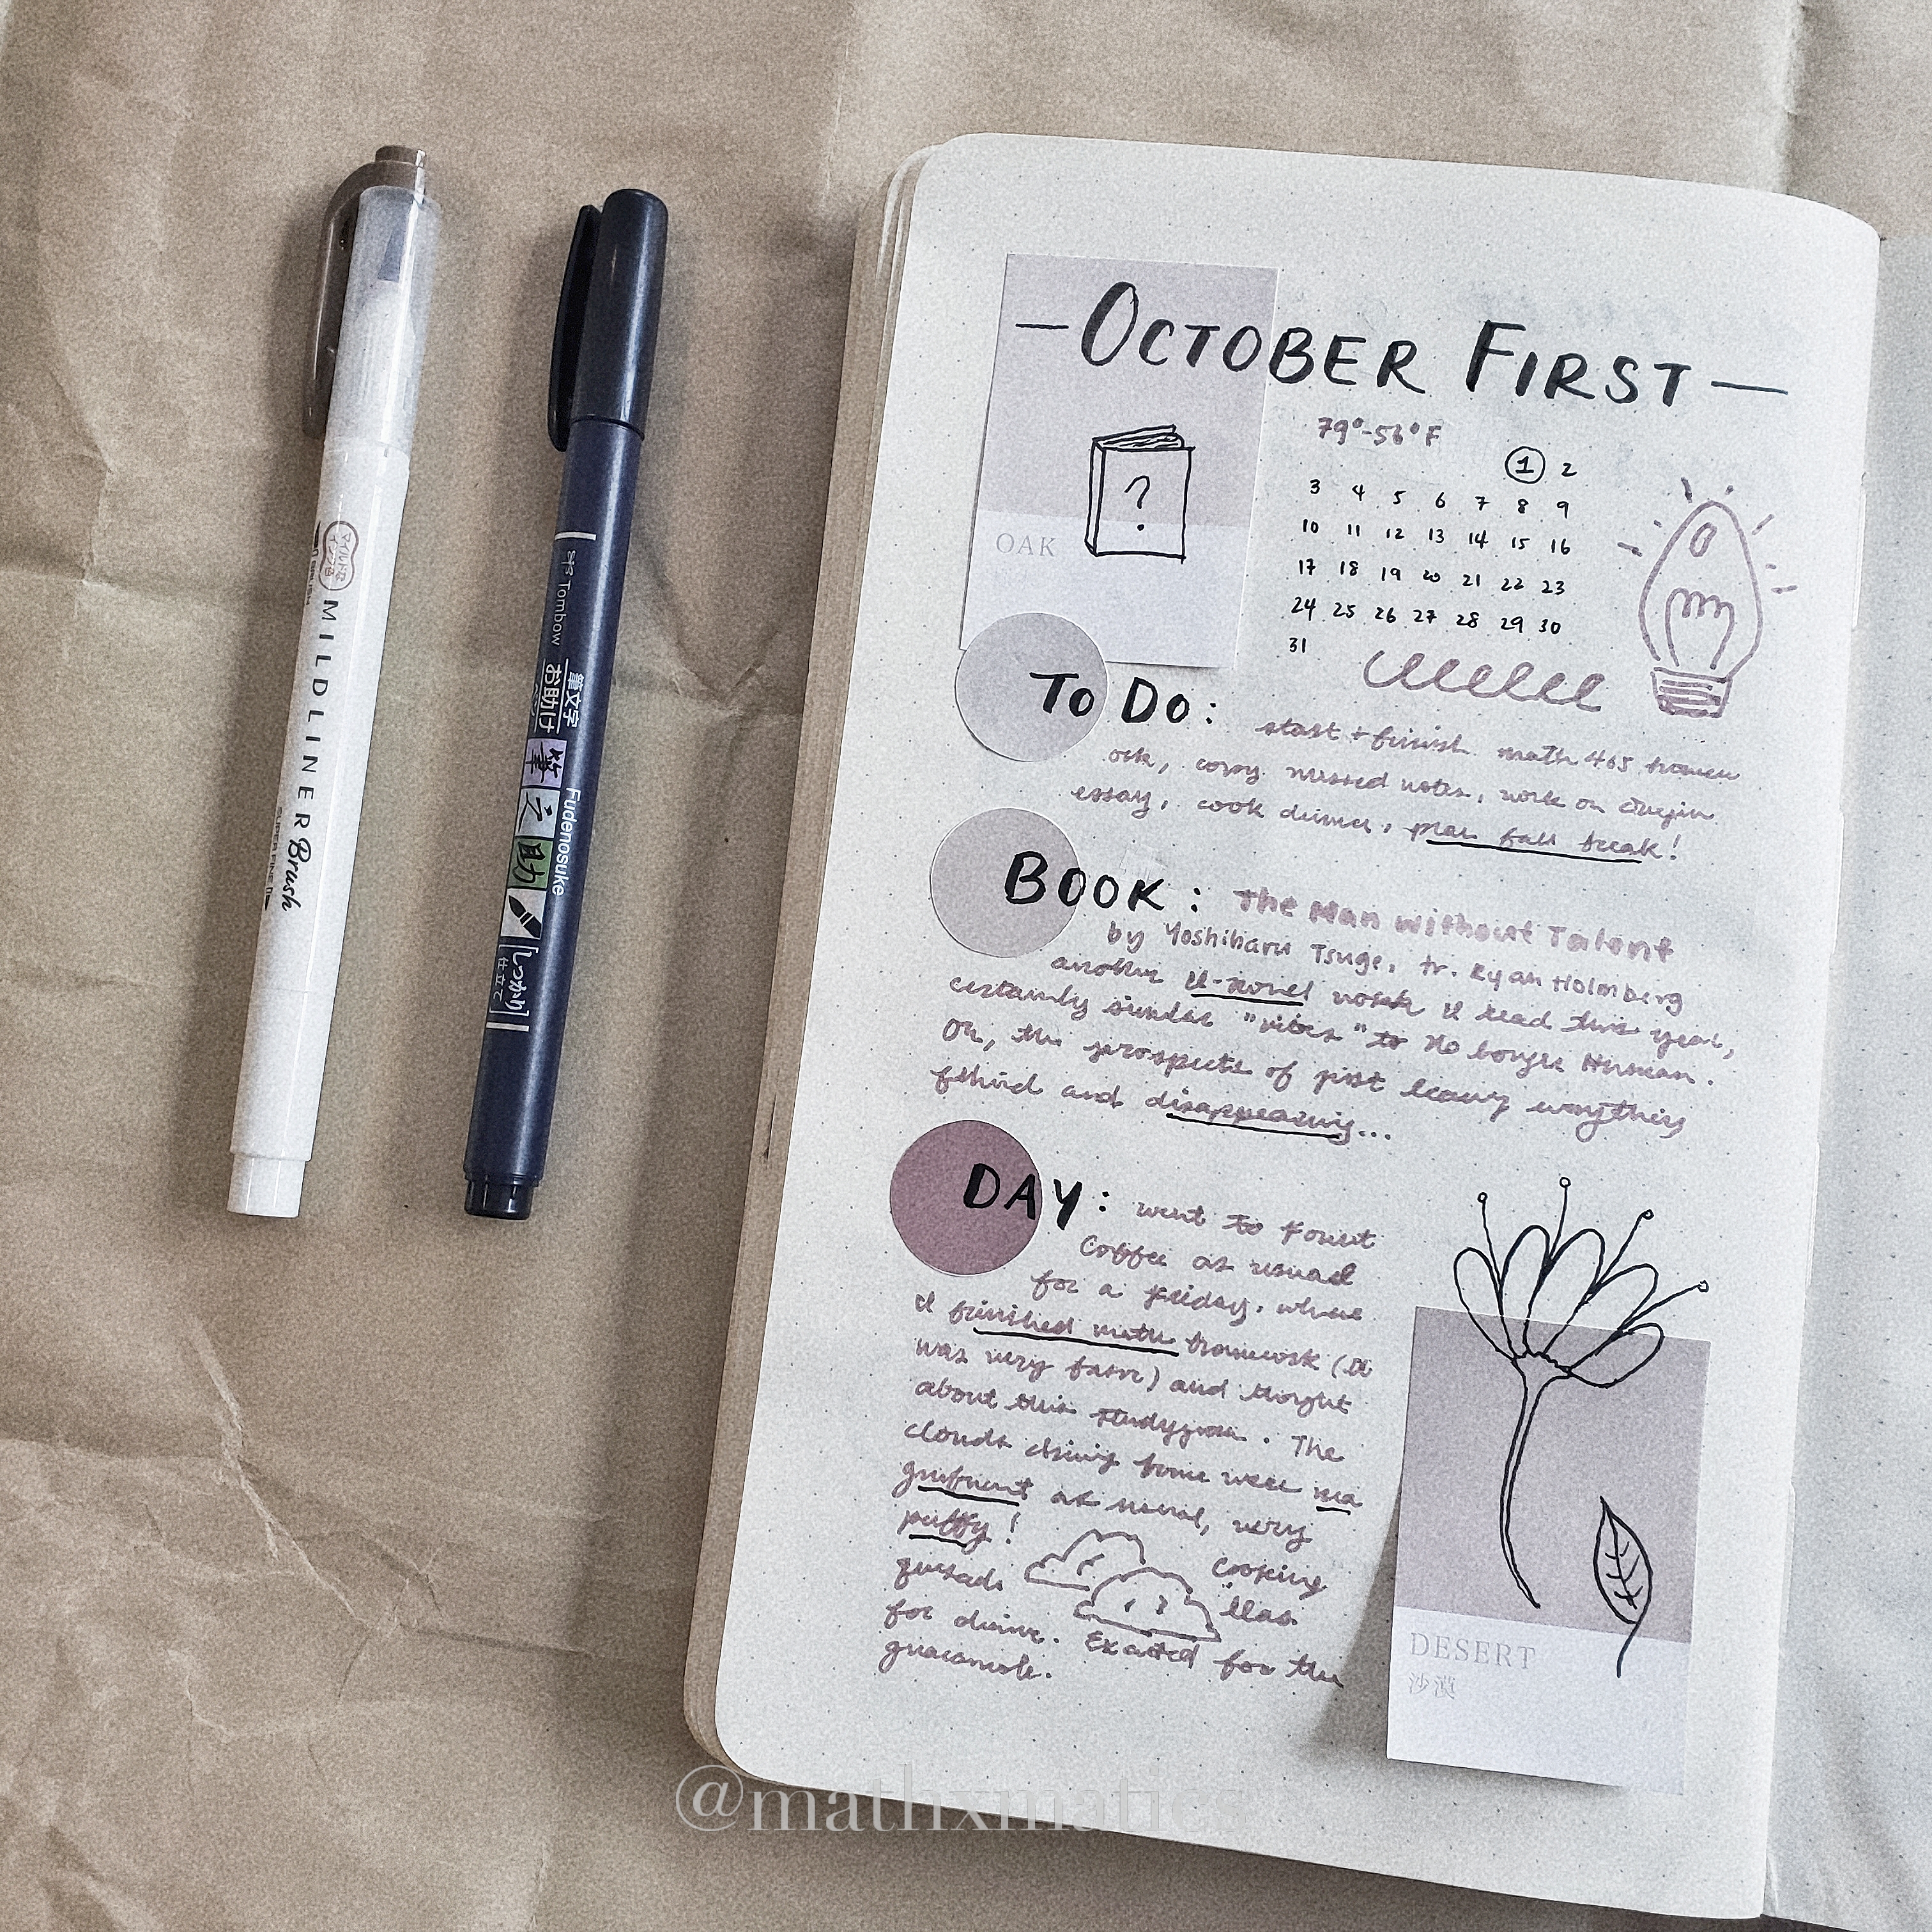 マイルドライナー
MILDLINER Brush
Tombow
筆文字
お助け
筆之助
Fudenosuke
しっかり
仕立て
— OCTOBER FIRST —
79°-56°F
OAK
?
1 2
3 4 5 6 7 8 9
10 11 12 13 14 15 16
17 18 19 20 21 22 23
24 25 26 27 28 29 30
31
TO DO: start + finish math 465 homew
ork, copy missed notes, work on
essay, cook dinner, plan fall break!
BOOK: The Man Without Talent
by Yoshiharu Tsuge, tr. Ryan Holmberg
another I-novel work I read this year,
certainly similar "vibes" to No Longer Human.
Oh, the prospects of just leaving everything
behind and disappearing...
DAY: went to Foust
Coffee as usual
for a Friday, where
I finished math homework (it
was very farm) and thought
about this studygram. The
clouds driving home were ma
gnificent as usual, very
puffy! Cooking
quesadillas
for dinner. Excited for the
guacamole.
DESERT
沙漠
@mathxmatics